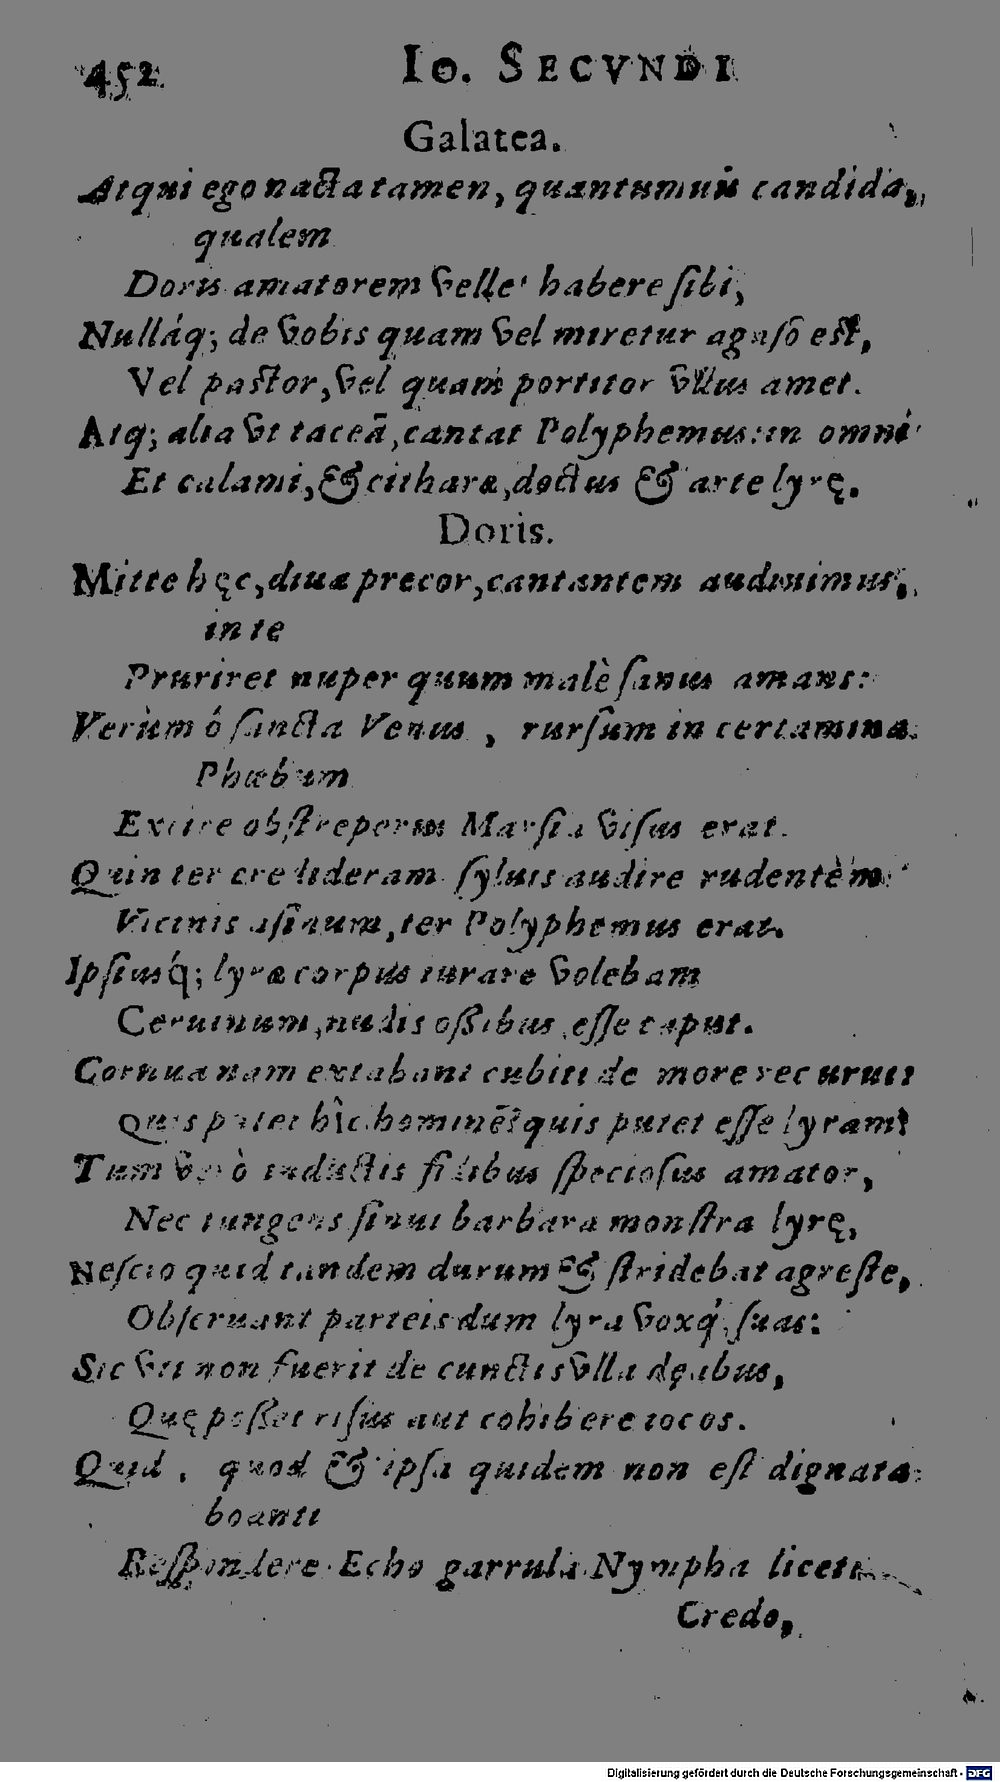 452 Io. SECVNDI
Galatea.
Atqui ego nacta tamen, quantumuis candida,
qualem
Doris amatorem velle' habere ſibi,
Nulláq; de vobis quam vel miretur agaſo eſt,
Vel paſtor, vel quam portitor vllus amet.
Atq; alia vt taceā, cantat Polyphemus: in omni
Et calami, & citharæ, doctus & arte lyrę.
Doris.
Mitte hęc, diua precor, cantantem audiuimus,
in te
Pruriret nuper quum malè ſanus amans:
Verùm ó ſancta Venus, rurſum in certamina
Phœbum
Exire obſtreperus Marſia viſus erat.
Quin ter credideram ſyluis audire rudentèm
Vicinis aſinum, ter Polyphemus erat.
Ipſiusq́; lyræ corpus iurare volebam
Ceruinum, nudis oſsibus eſſe caput.
Cornua nam extabant cubiti de more recurui
Quis putet hîc hominē? quis putet eſſe lyram?
Tum verò inductis fidibus ſpecioſus amator,
Nec iungens ſinui barbara monſtra lyrę,
Neſcio quid tandem durum & ſtridebat agreſte,
Obſeruant parteis dum lyra voxq́, ſuas:
Sic vti non fuerit de cunctis vlla deabus,
Quę poſſet riſus aut cohibere iocos.
Quid, quod & ipſa quidem non eſt dignata
boanti
Reſpondere Echo garrula Nympha licet:
Credo,
Digitalisierung gefördert durch die Deutsche Forschungsgemeinschaft - DFG